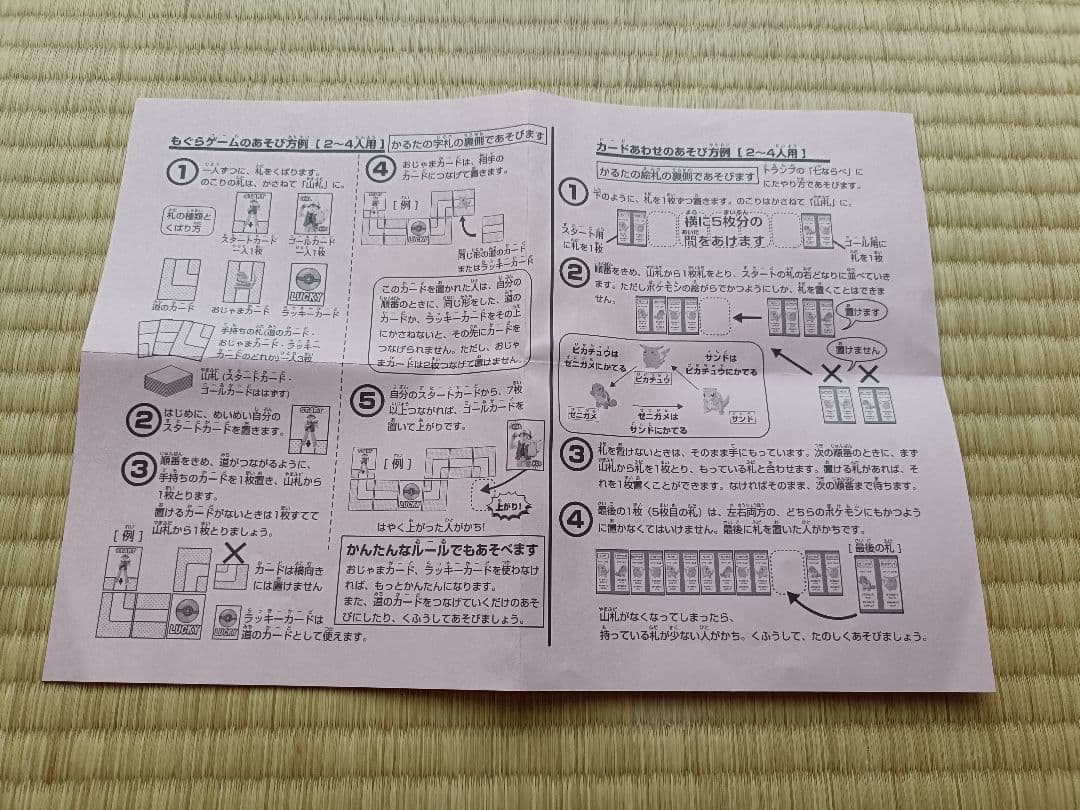 もぐらゲームのあそび方例［2〜4人用］
かるたの字札の裏側であそびます
① 一人ずつに、札をくばります。
のこりの札は、かさねて「山札」に。
札の種類と
くばり方
START
スタートカード
一人1枚
GOAL
ゴールカード
一人1枚
道のカード
おじゃまカード
LUCKY
ラッキーカード
手持ちの札(道のカード・
おじゃまカード・ラッキー
カードのどれか)一人3枚
山札(スタートカード・
ゴールカードははずす)
② はじめに、めいめい自分の
スタートカードを置きます。
START
③ 順番をきめ、道がつながるように、
手持ちのカードを1枚置き、山札から
1枚とります。
置けるカードがないときは1枚すてて
山札から1枚とりましょう。
［例］
START
カードは横向き
には置けません
LUCKY
LUCKY
ラッキーカードは
道のカードとして使えます。
④ おじゃまカードは、相手の
カードにつなげて置きます。
［例］
同じ形の道のカード
またはラッキーカード
このカードを置かれた人は、自分の
順番のときに、同じ形をした、道の
カードか、ラッキーカードをその上
にかさねないと、その先にカードを
つなげられません。ただし、おじゃ
まカードは2枚つなげて置けません。
⑤ 自分のスタートカードから、7枚
以上つながれば、ゴールカードを
置いて上がりです。
［例］
上がり!
はやく上がった人がかち!
かんたんなルールでもあそべます
おじゃまカード、ラッキーカードを使わなけ
れば、もっとかんたんになります。
また、道のカードをつなげていくだけのあそ
びにしたり、くふうしてあそびましょう。
カードあわせのあそび方例［2〜4人用］
かるたの絵札の裏側であそびます
トランプの「七ならべ」に
にたやり方であそびます。
① 下のように、札を1枚ずつ置きます。のこりはかさねて「山札」に。
スタート用
に札を1枚
横に5枚分の
間をあけます
ゴール用に
札を1枚
② 順番をきめ、山札から1枚札をとり、スタートの札の右どなりに並べてい
きます。ただしポケモンの絵がらでかつようにしか、札を置くことはできま
せん。
置けます
置けません
ピカチュウは
ゼニガメにかてる
ピカチュウ
サンドは
ピカチュウにかてる
ゼニガメ
ゼニガメは
サンドにかてる
サンド
③ 札を置けないときは、そのまま手にもっています。次の順番のときに、まず
山札から札を1枚とり、もっている札と合わせます。置ける札があれば、そ
れを1枚置くことができます。なければそのまま、次の順番まで待ちます。
④ 最後の1枚（5枚目の札）は、左右両方の、どちらのポケモンにもかつよう
に置かなくてはいけません。最後に札を置いた人がかちです。
［最後の札］
山札がなくなってしまったら、
持っている札が少ない人がかち。くふうして、たのしくあそびましょう。